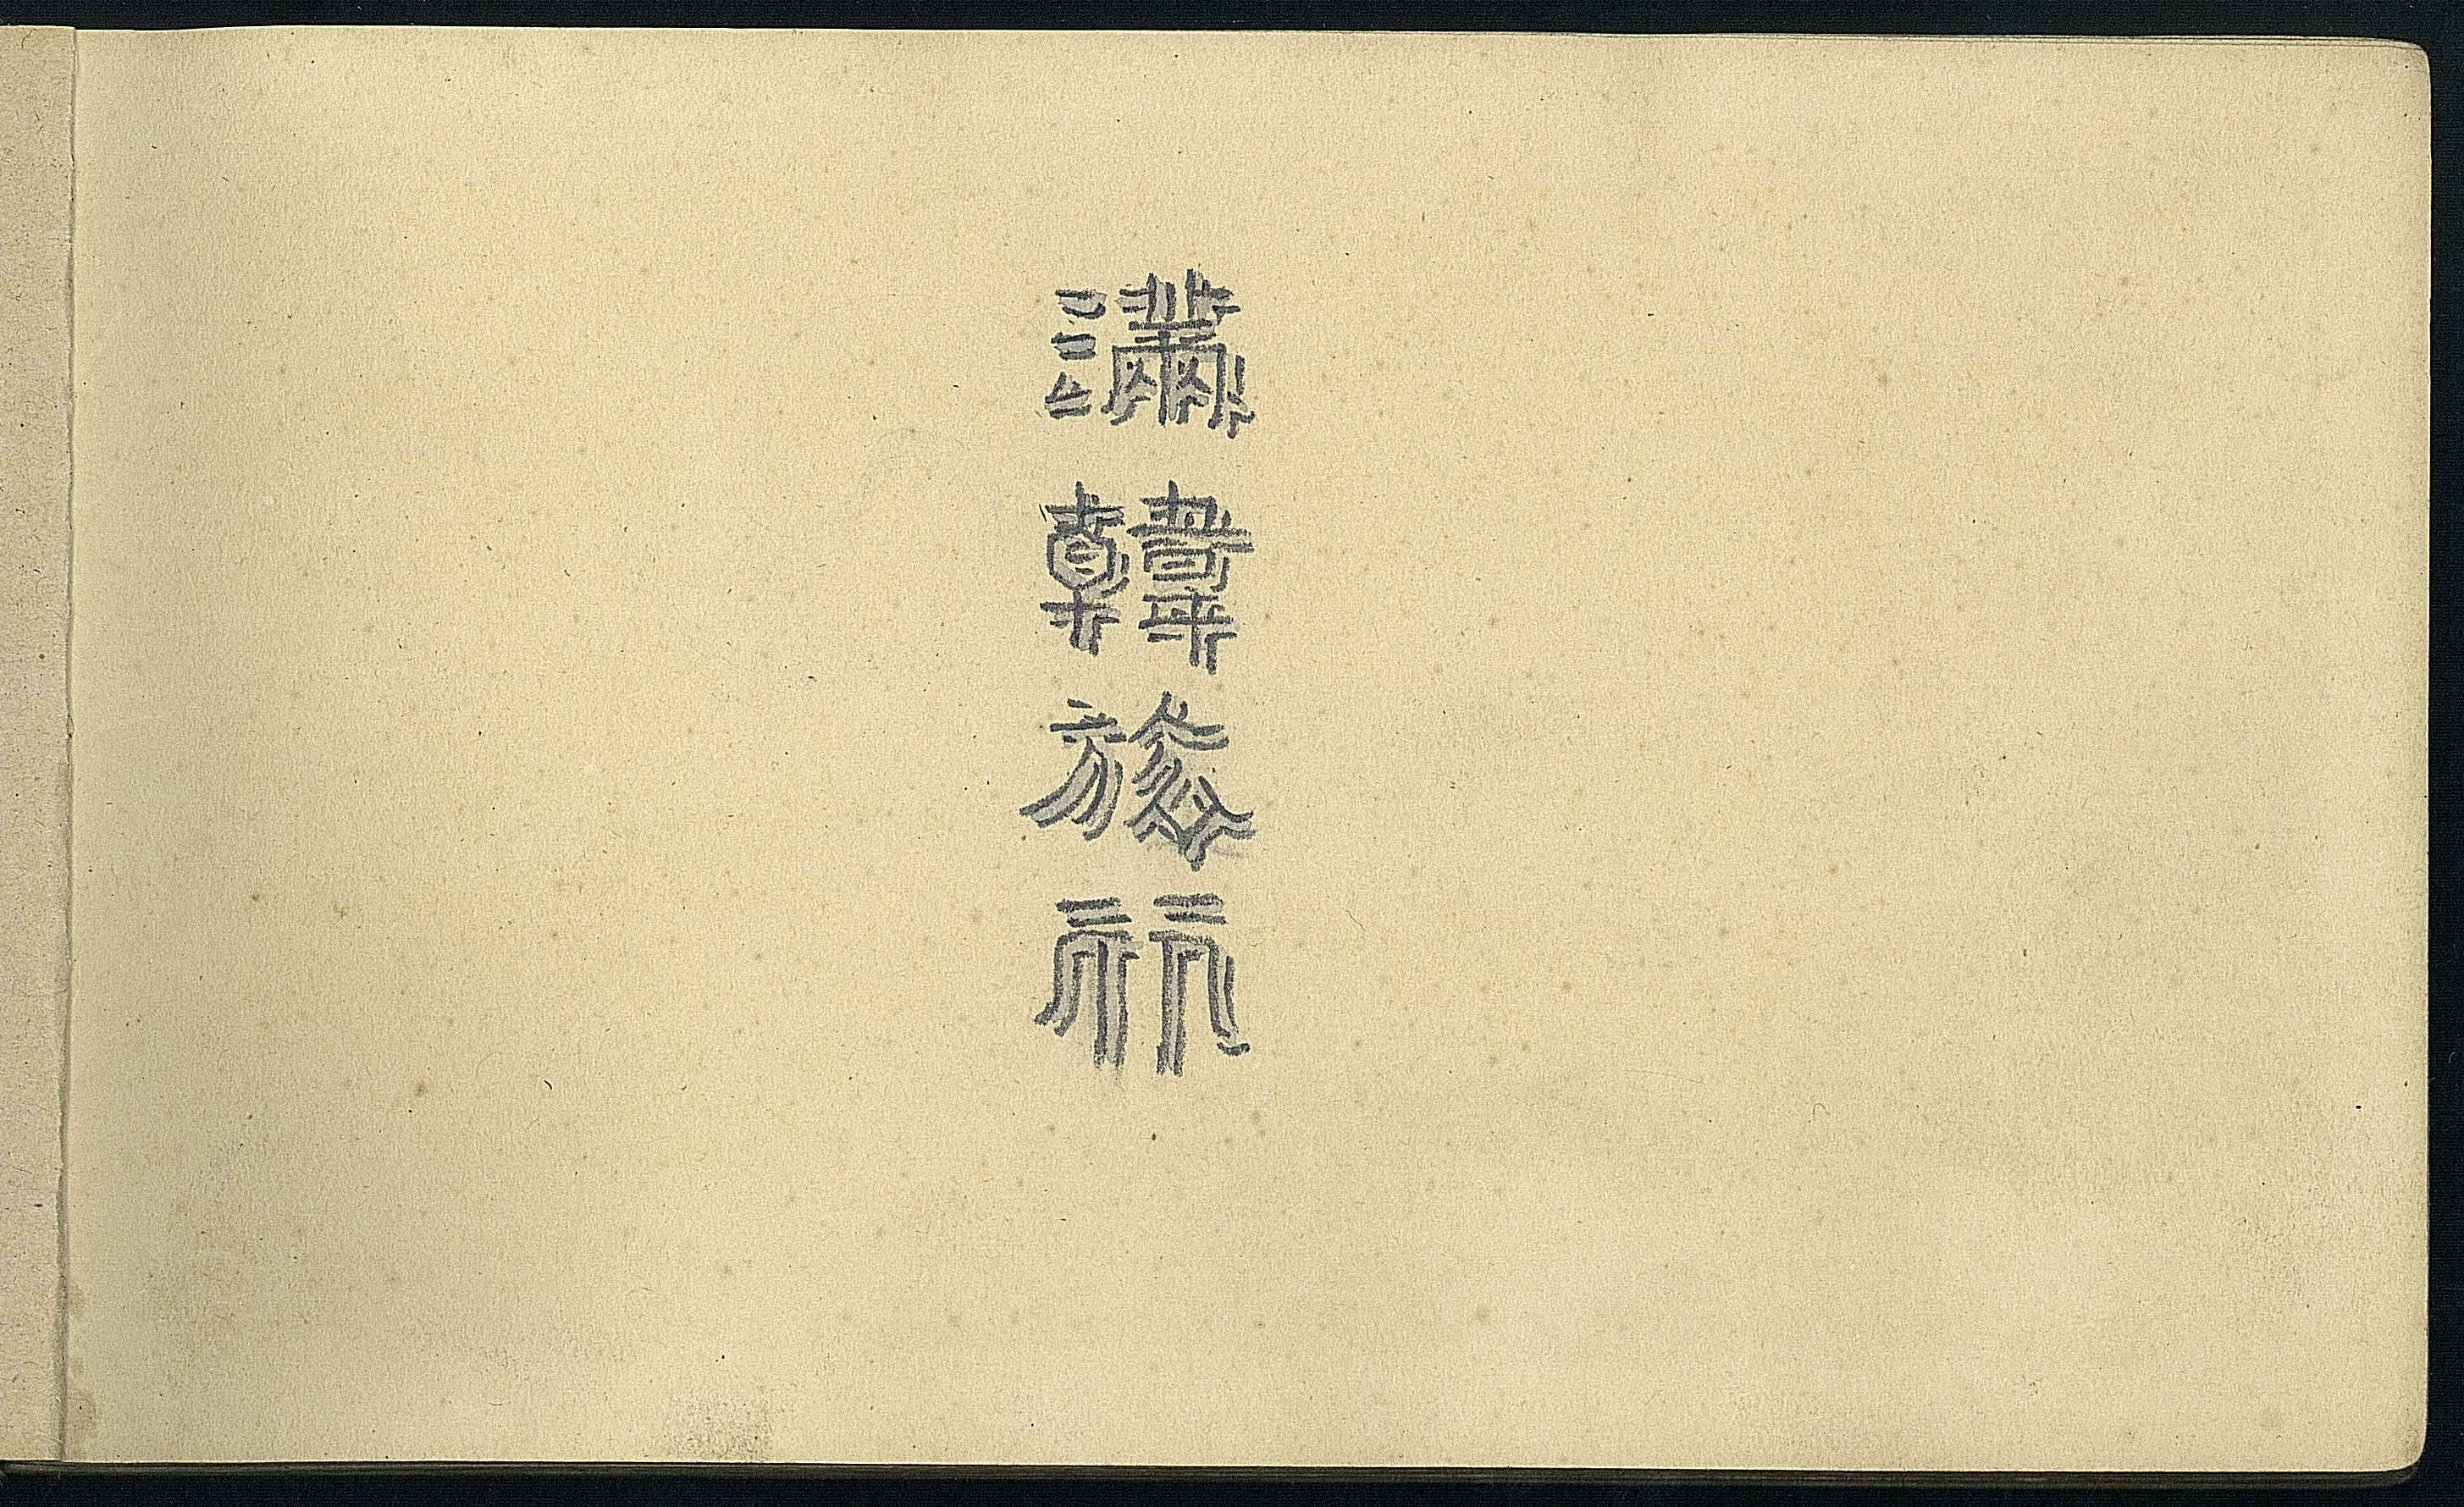 滿韓旅行